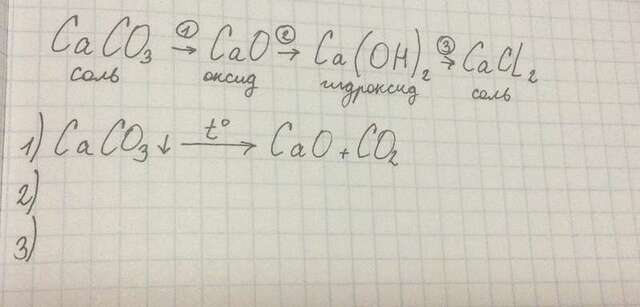 CaCO₃ ①→ CaO ②→ Ca(OH)₂ ③→ CaCl₂
соль оксид гидроксид соль
1) CaCO₃↓ t°→ CaO + CO₂
2)
3)